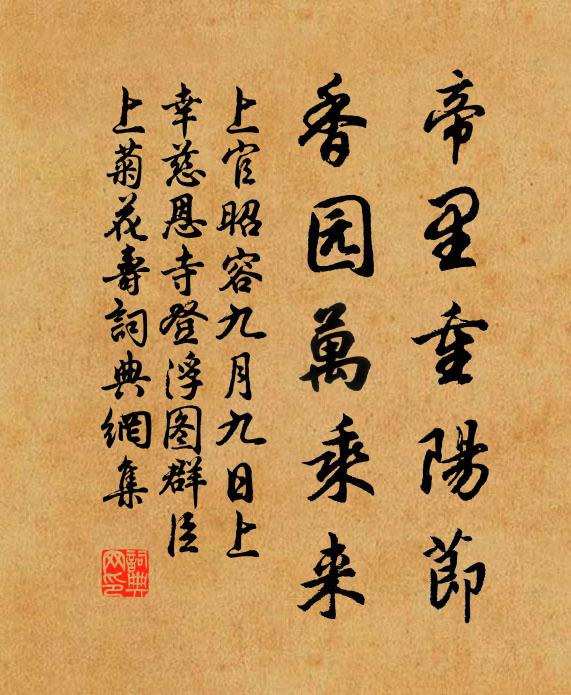 帝里重陽節
香园萬乘来
上官昭容九月九日上
幸慈恩寺登浮图群臣
上菊花壽詞典網集
詞典网印